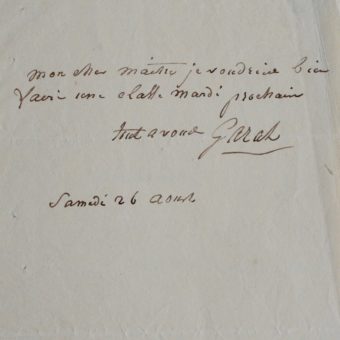 mon cher maitre je voudrois bien
faire une classe mardi prochain
tout a vous Garat
Samedi 26 aoust